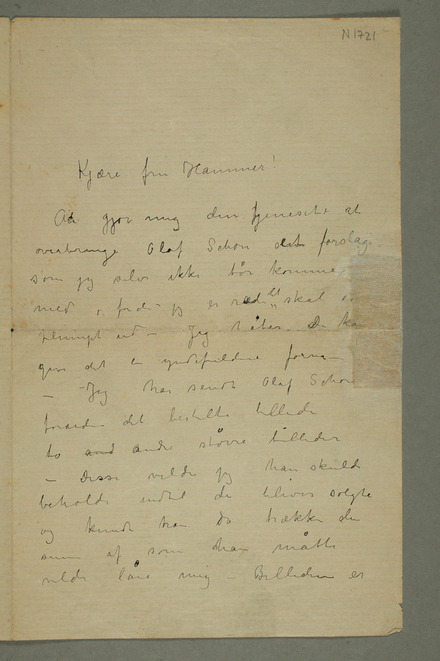 N.1721
Kjære fru Hammer!
Aa gjør mig den tjeneste at
overbringe Olaf Schou det forslag
som jeg selv ikke tør komme
med, fordi jeg er ræd det skal
plumpt ud – Jeg håber De kan
give det en yndefuldere form –
– Jeg har sendt Olaf Schou
foruden det bestilte billede
to andre større billeder
– Disse vilde jeg han skulde
beholde indtil de blives solgte
og kunde han da trække den
sum af som han måtte
vilde låne mig – Billederne er